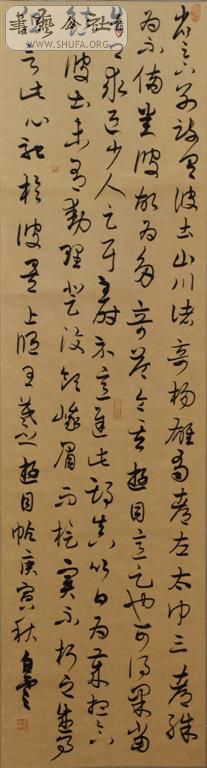 書藝公社
WWW.SHUFA.ORG
省足下別疏具彼土山川諸奇楊雄蜀都左太沖三都殊
為不備悉彼故為多奇益令其遊目意足也可得果當
告卿求迎少人足耳至時示意遲此期真以日為歲想足下
鎮彼土未有動理登汶領峨眉而旋實不朽之盛事
但言此心馳於彼矣上臨王羲之遊目帖庚寅秋